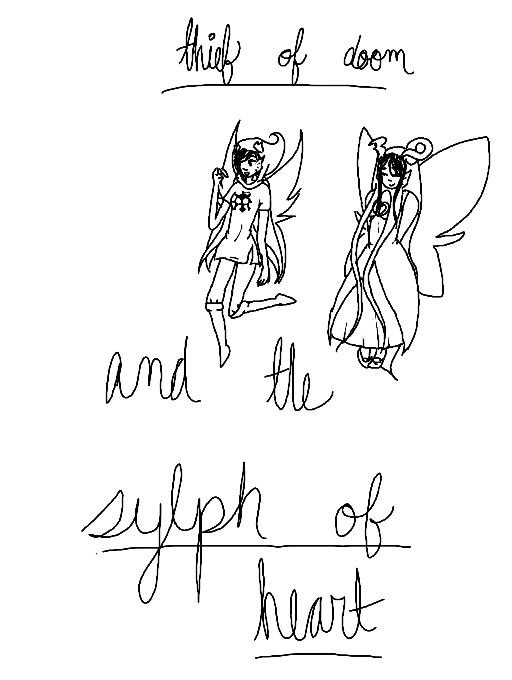 thief of doom
and the
sylph of
heart